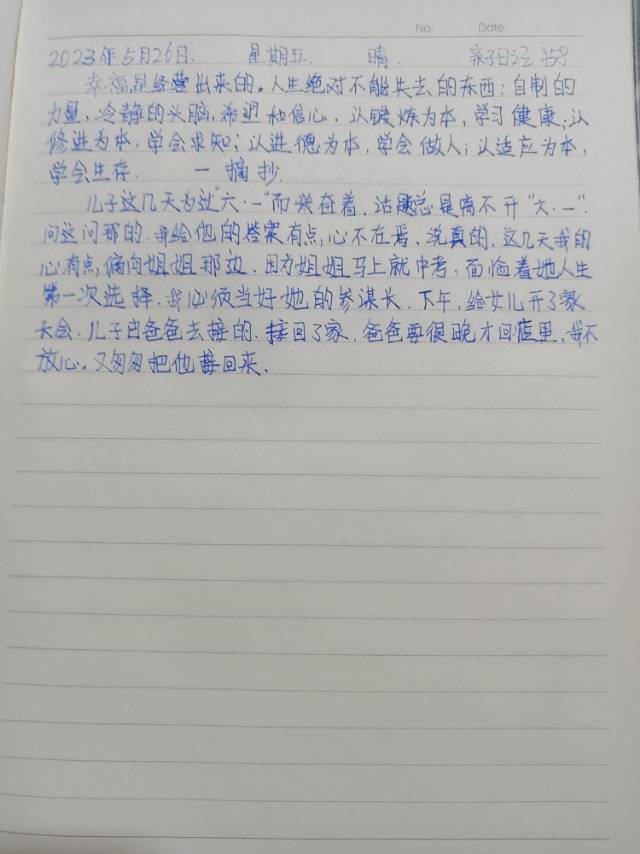 No: Date:
2023年5月26日. 星期五 晴. 亲子日记 458
幸福是经营出来的。人生绝对不能失去的东西：自制的
力量，冷静的头脑，希望和信心。认锻炼为本，学习健康；认
修进为本，学会求知；认进德为本，学会做人；认适应为本，
学会生存. 一摘抄.
儿子这几天为过"六·一"而兴奋着，话题总是离不开"六·一".
问这问那的.我给他的答案有点心不在焉.说真的,这几天我的
心有点偏向姐姐那边.因为姐姐马上就中考,面临着她人生
第一次选择.我必须当好她的参谋长.下午,给女儿开了家
长会.儿子由爸爸去接的.接回了家.爸爸要很晚才回店里,我不
放心.又匆匆把他接回来.